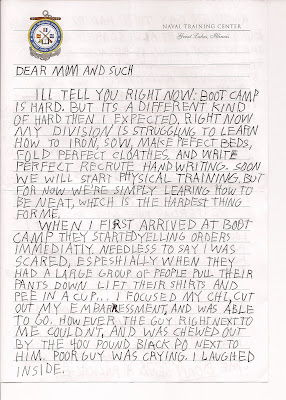 NAVAL TRAINING CENTER
Great Lakes, Illinois
DEAR MOM AND SUCH
ILL TELL YOU RIGHT NOW: BOOT CAMP
IS HARD. BUT ITS A DIFFERENT KIND
OF HARD THEN I EXPECTED. RIGHT NOW
MY DIVISION IS STRUGGLING TO LEARN
HOW TO IRON, SOW, MAKE PEFECT BEDS,
FOLD PERFECT CLOATHES, AND WRITE
PERFECT RECRUTE HANDWRITING. SOON
WE WILL START PHYSICAL TRAINING, BUT
FOR NOW WE'RE SIMPLY LEARING HOW TO
BE NEAT, WHICH IS THE HARDEST THING
FOR ME.
WHEN I FIRST ARRIVED AT BOOT
CAMP THEY STARTED YELLING ORDERS
IMMEDIATLY. NEEDLESS TO SAY I WAS
SCARED, ESPESHIALLY WHEN THEY
HAD A LARGE GROUP OF PEOPLE PULL THEIR
PANTS DOWN LIFT THEIR SHIRTS AND
PEE IN A CUP... I FOCUSED MY CHI, CUT
OUT MY EMBARRESSMENT, AND WAS ABLE
TO GO. HOWEVER THE GUY RIGHT NEXT TO
ME COULDN'T, AND WAS CHEWED OUT
BY THE 400 POUND BLACK PO NEXT TO
HIM. POOR GUY WAS CRYING. I LAUGHED
INSIDE.